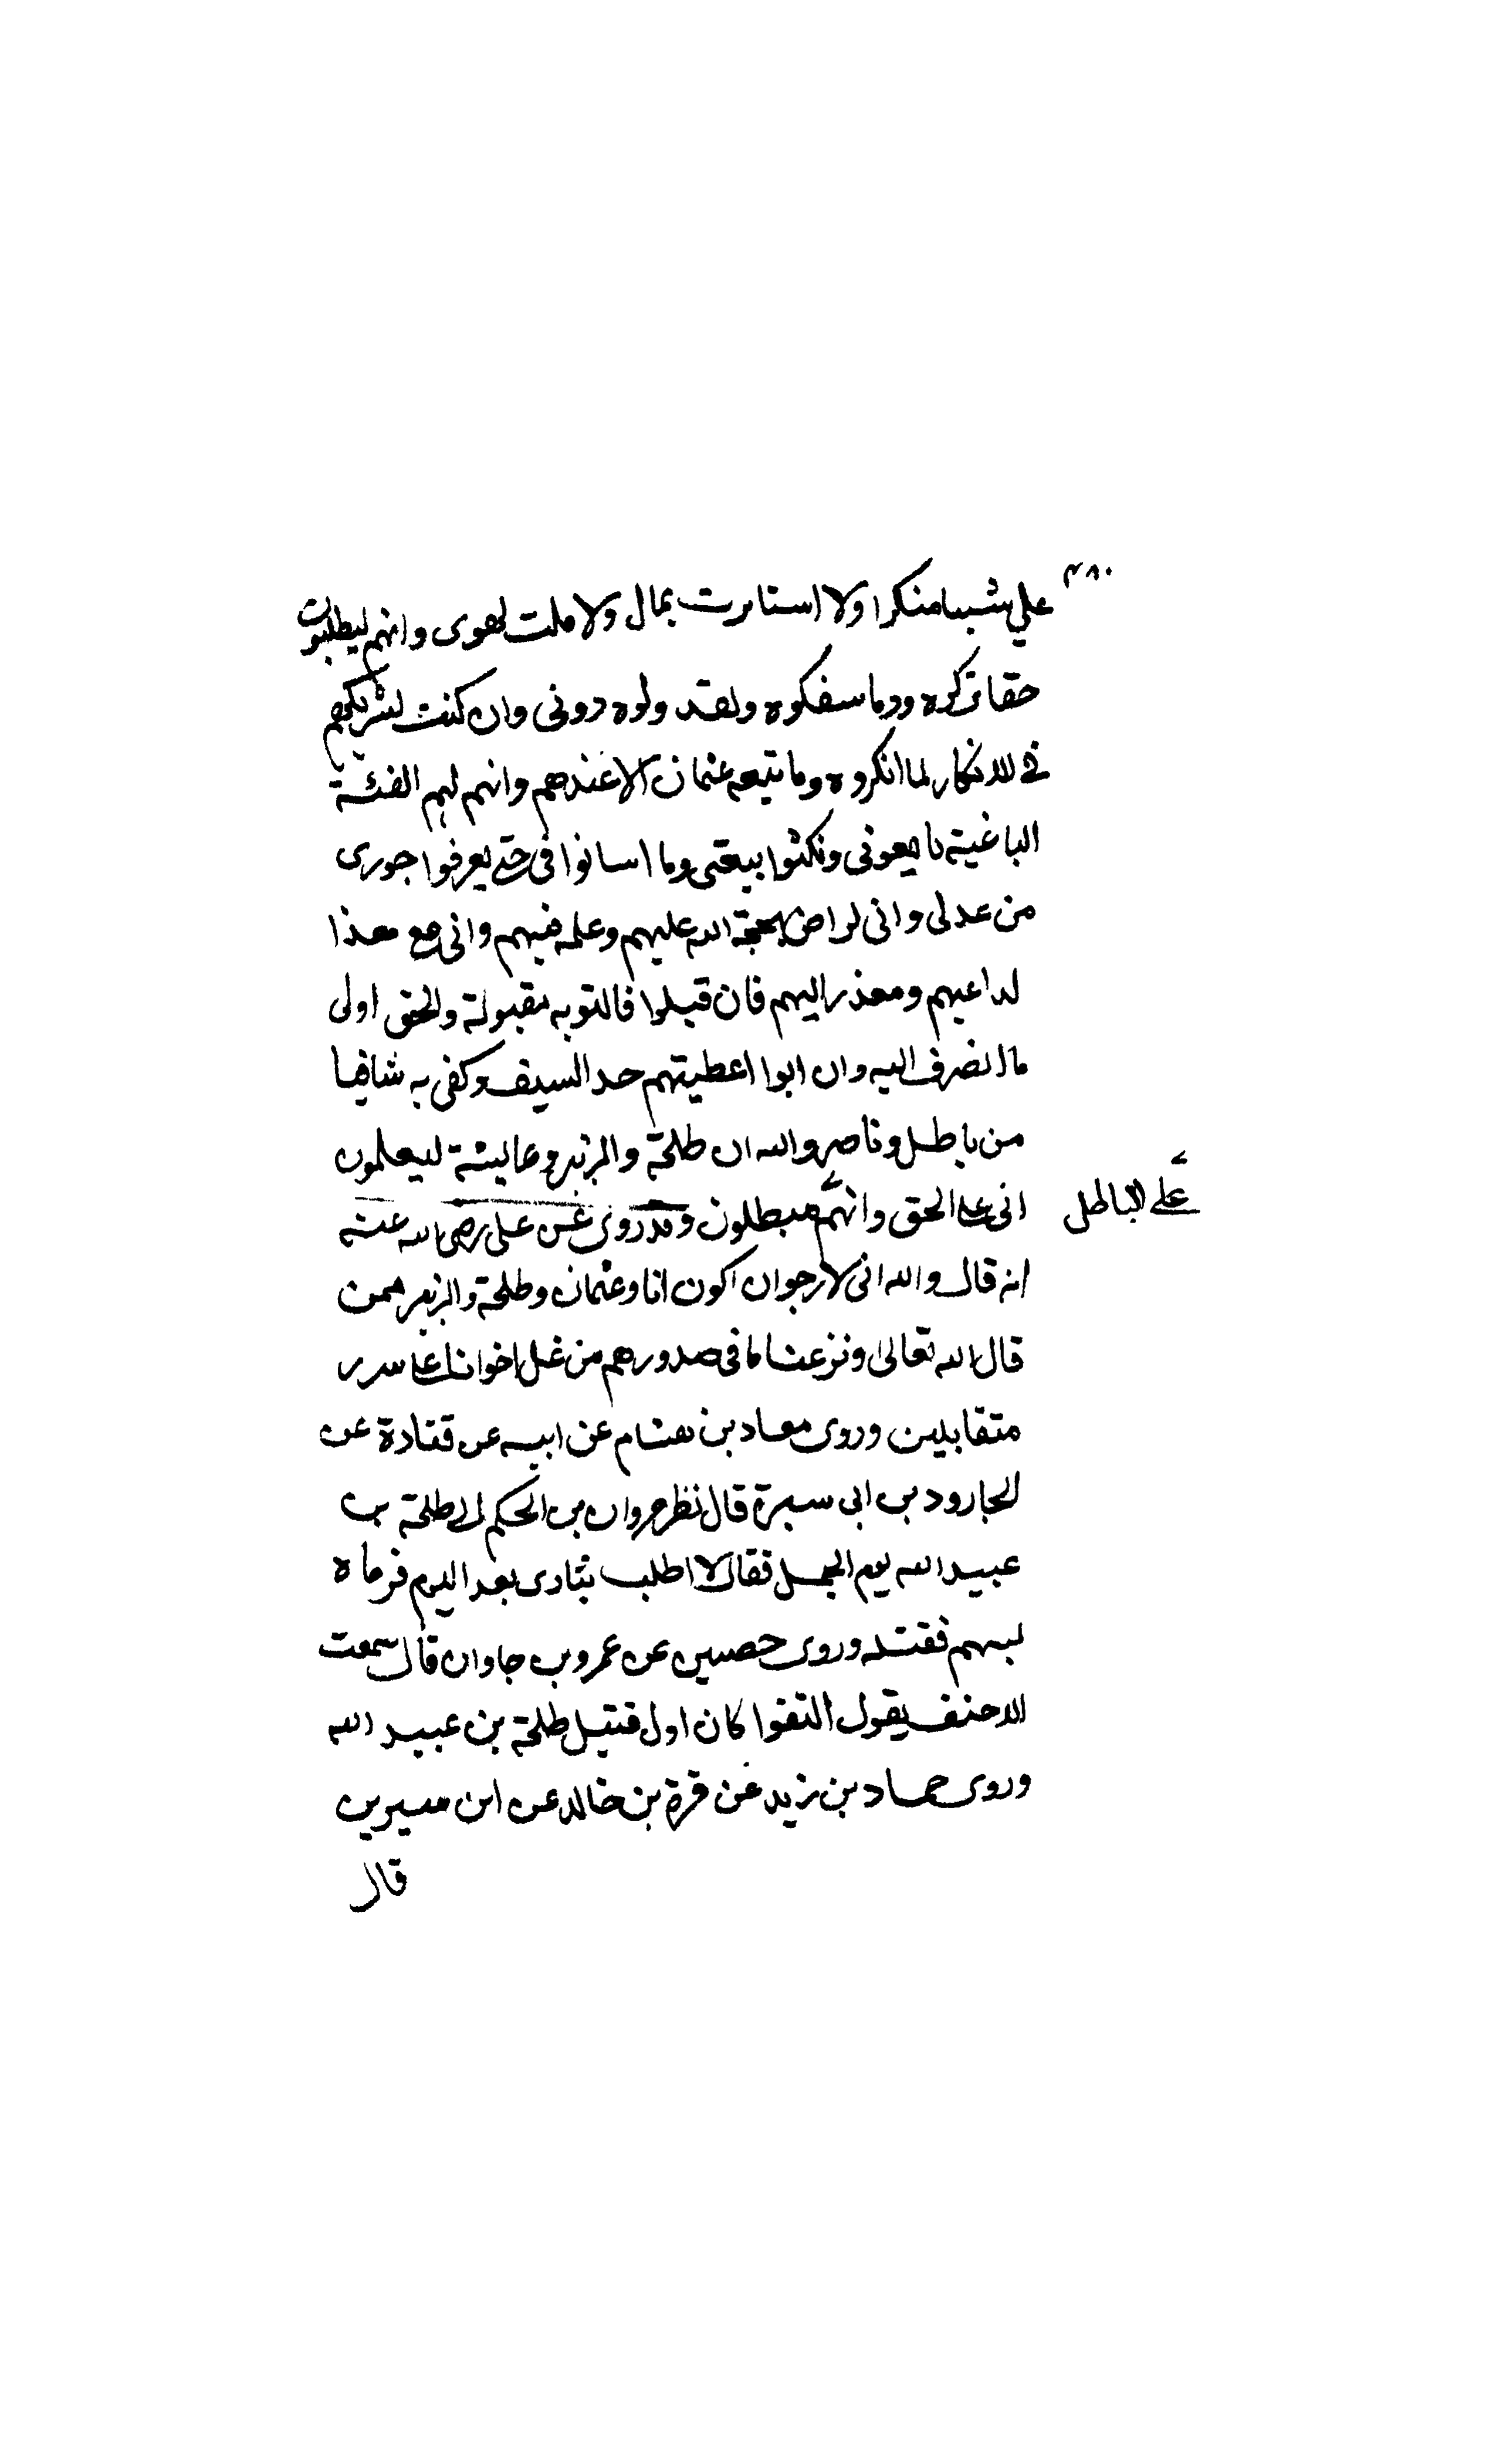 ٤٨٠
علي شيبا منكرا ولا استاثرت بمال ولا ملت لهوى وانهم ليطلبون
حقا تركوه ودما سفكوه ولقد ولوه دونى وان كنت لشريكهم
في الانكار لما انكروه وما تبعه عثمان الا عندهم وانهم لهم الفئة
الباغية بايعونى ونكثوا بيعتى وما استانوا فى حتى يعرفوا جورى
من عدلى وانى لراض بحجة الله عليهم وعلمه فيهم وانى مع هذا
لداعيهم ومعذر اليهم فان قبلوا فالتوبه مقبولة والحق اولى
ما انصرف اليه وان ابوا اعطيتهم حد السيف وكفى به شافيا
من باطل وناصر والله ان طلحة والزبير وعايشة ليعلمون
انى على الحق وانهم مبطلون وقد روى عن على رضى الله عنه
على الباطل
انه قال والله انى لارجو ان اكون انا وعثمان وطلحة والزبير ممن
قال الله تعالى ونزعنا ما فى صدورهم من غل اخوانا على سرر
متقابلين وروى معاد بن هشام عن ابيه عن قتادة عن
الجارود بن ابى سبرة قال نظر مروان بن الحكم الى طلحة بن
عبيد الله يوم الجمل فقال لا اطلب بثارى بعد اليوم فرماه
بسهم فقتله وروى حصين عن عمرو بن جاوان قال سمعت
الاحنف يقول التقوا كان اول قتيل طلحة بن عبيد الله
وروى حماد بن زيد عن قرة بن خالد عن ابن سيرين
قال